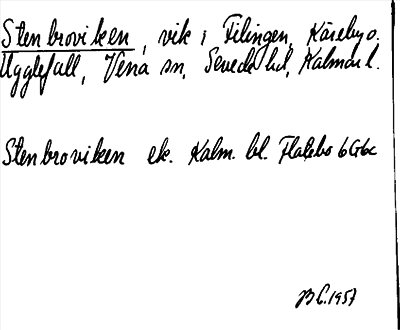 Stenbroviken, vik i Tilingen, Käreby o.
Ugglefall, Vena sn, Sevede hd, Kalmar l.
Stenbroviken ek. Kalm. bl. Flatebo 6G6c
BL.1957